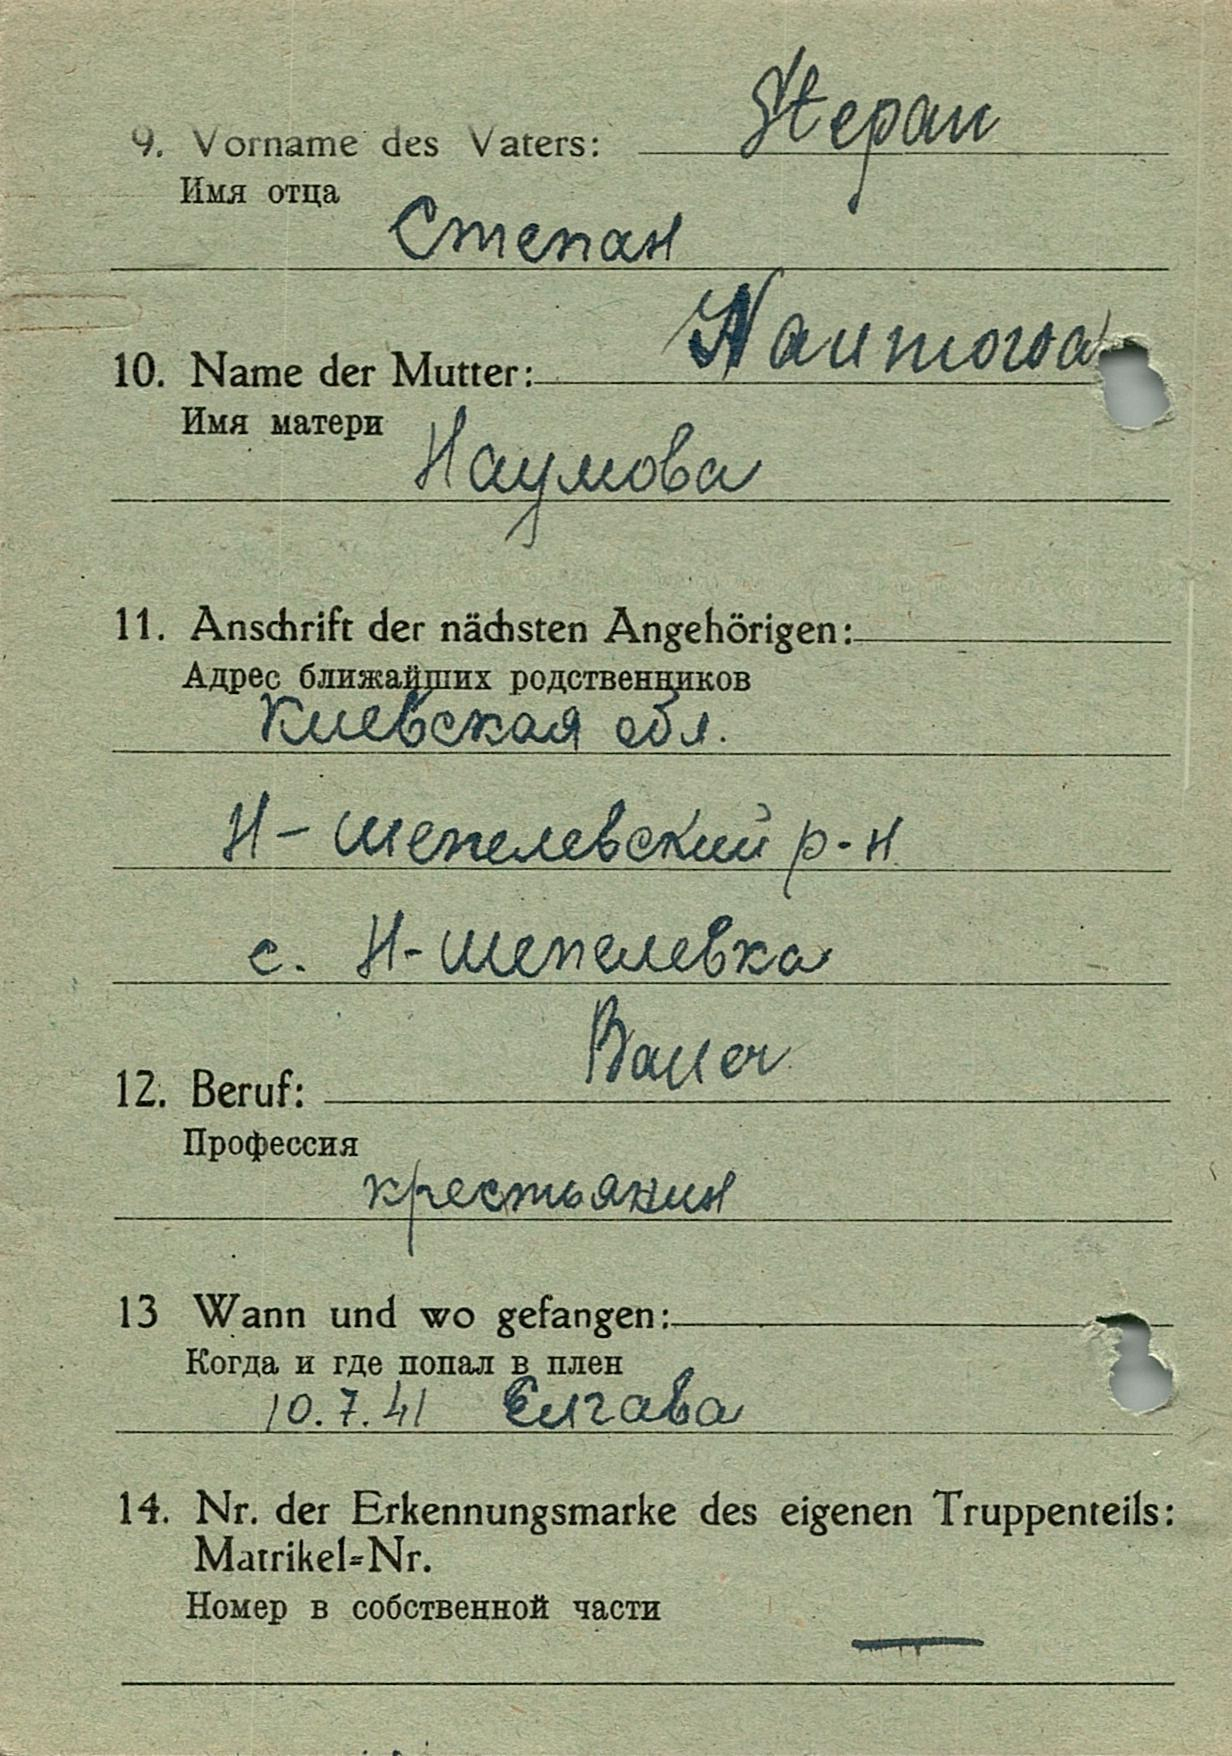 9. Vorname des Vaters: Stepan
Имя отца
Степан
10. Name der Mutter: Naumowa
Имя матери
Наумова
11. Anschrift der nächsten Angehörigen:
Адрес ближайших родственников
Киевская обл.
Н-шепелевский р-н
с. Н-шепелевка
12. Beruf: Bauer
Профессия
крестьянин
13 Wann und wo gefangen:
Когда и где попал в плен
10.7.41 Елгава
14. Nr. der Erkennungsmarke des eigenen Truppenteils:
Matrikel=Nr.
Номер в собственной части
—